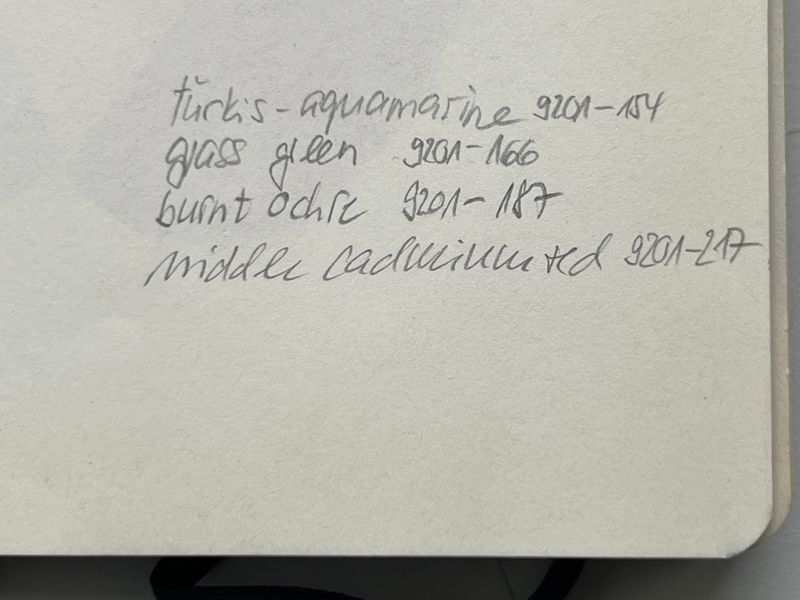 türkis - aquamarine 9201-154
grass green 9201-166
burnt ochre 9201-187
middle cadmium red 9201-217